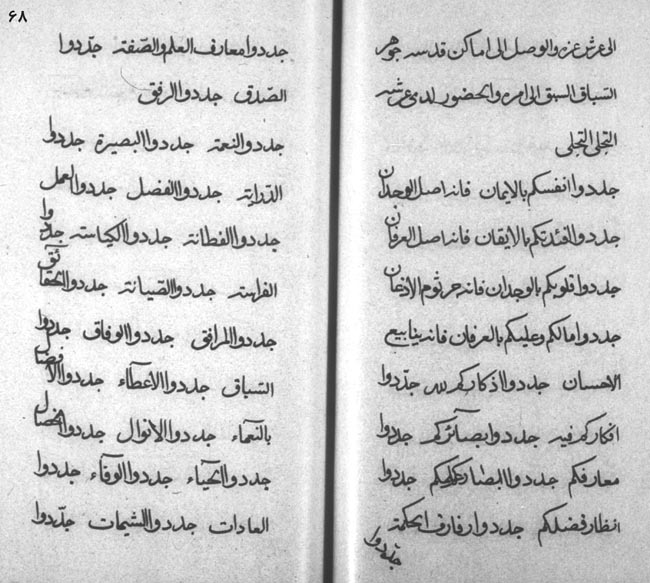 ۶۸
الی عرش عزه والوصل الی اماکن قدسه جوهر
السباق السبق الی امره والحضور لدی عرشه
التجلی التجلی
جددوا انفسکم بالایمان فانه اصل الوجدان
جددوا افئدتکم بالایقان فانه اصل العرفان
جددوا قلوبکم بالوجدان فانه جرثوم الاذعان
جددوا امالکم وعلیکم بالعرفان فانه ینابیع
الاحسان جددوا اذکارکم لله جددوا
افکارکم فیه جددوا بصائرکم جددوا
معارفکم جددوا ابصارکم جددوا
انظار فضلکم جددوا رفارف الحکمة
جددوا
جددوا معارف العلم والصفة جددوا
الصدق جددوا الرفق
جددوا النعمة جددوا البصیرة جددوا
الدرایة جددوا الفضل جددوا العمل
جددوا الفطانة جددوا الکیاسة جددوا
الفراهة جددوا الصیانة جددوا الحقائق
جددوا المرافق جددوا الوفاق جددوا
السباق جددوا الاعطاء جددوا الافضال
بالنعماء جددوا الانوال جددوا الخصال
جددوا الحیاء جددوا الوفاء جددوا
العادات جددوا الشیمات جددوا